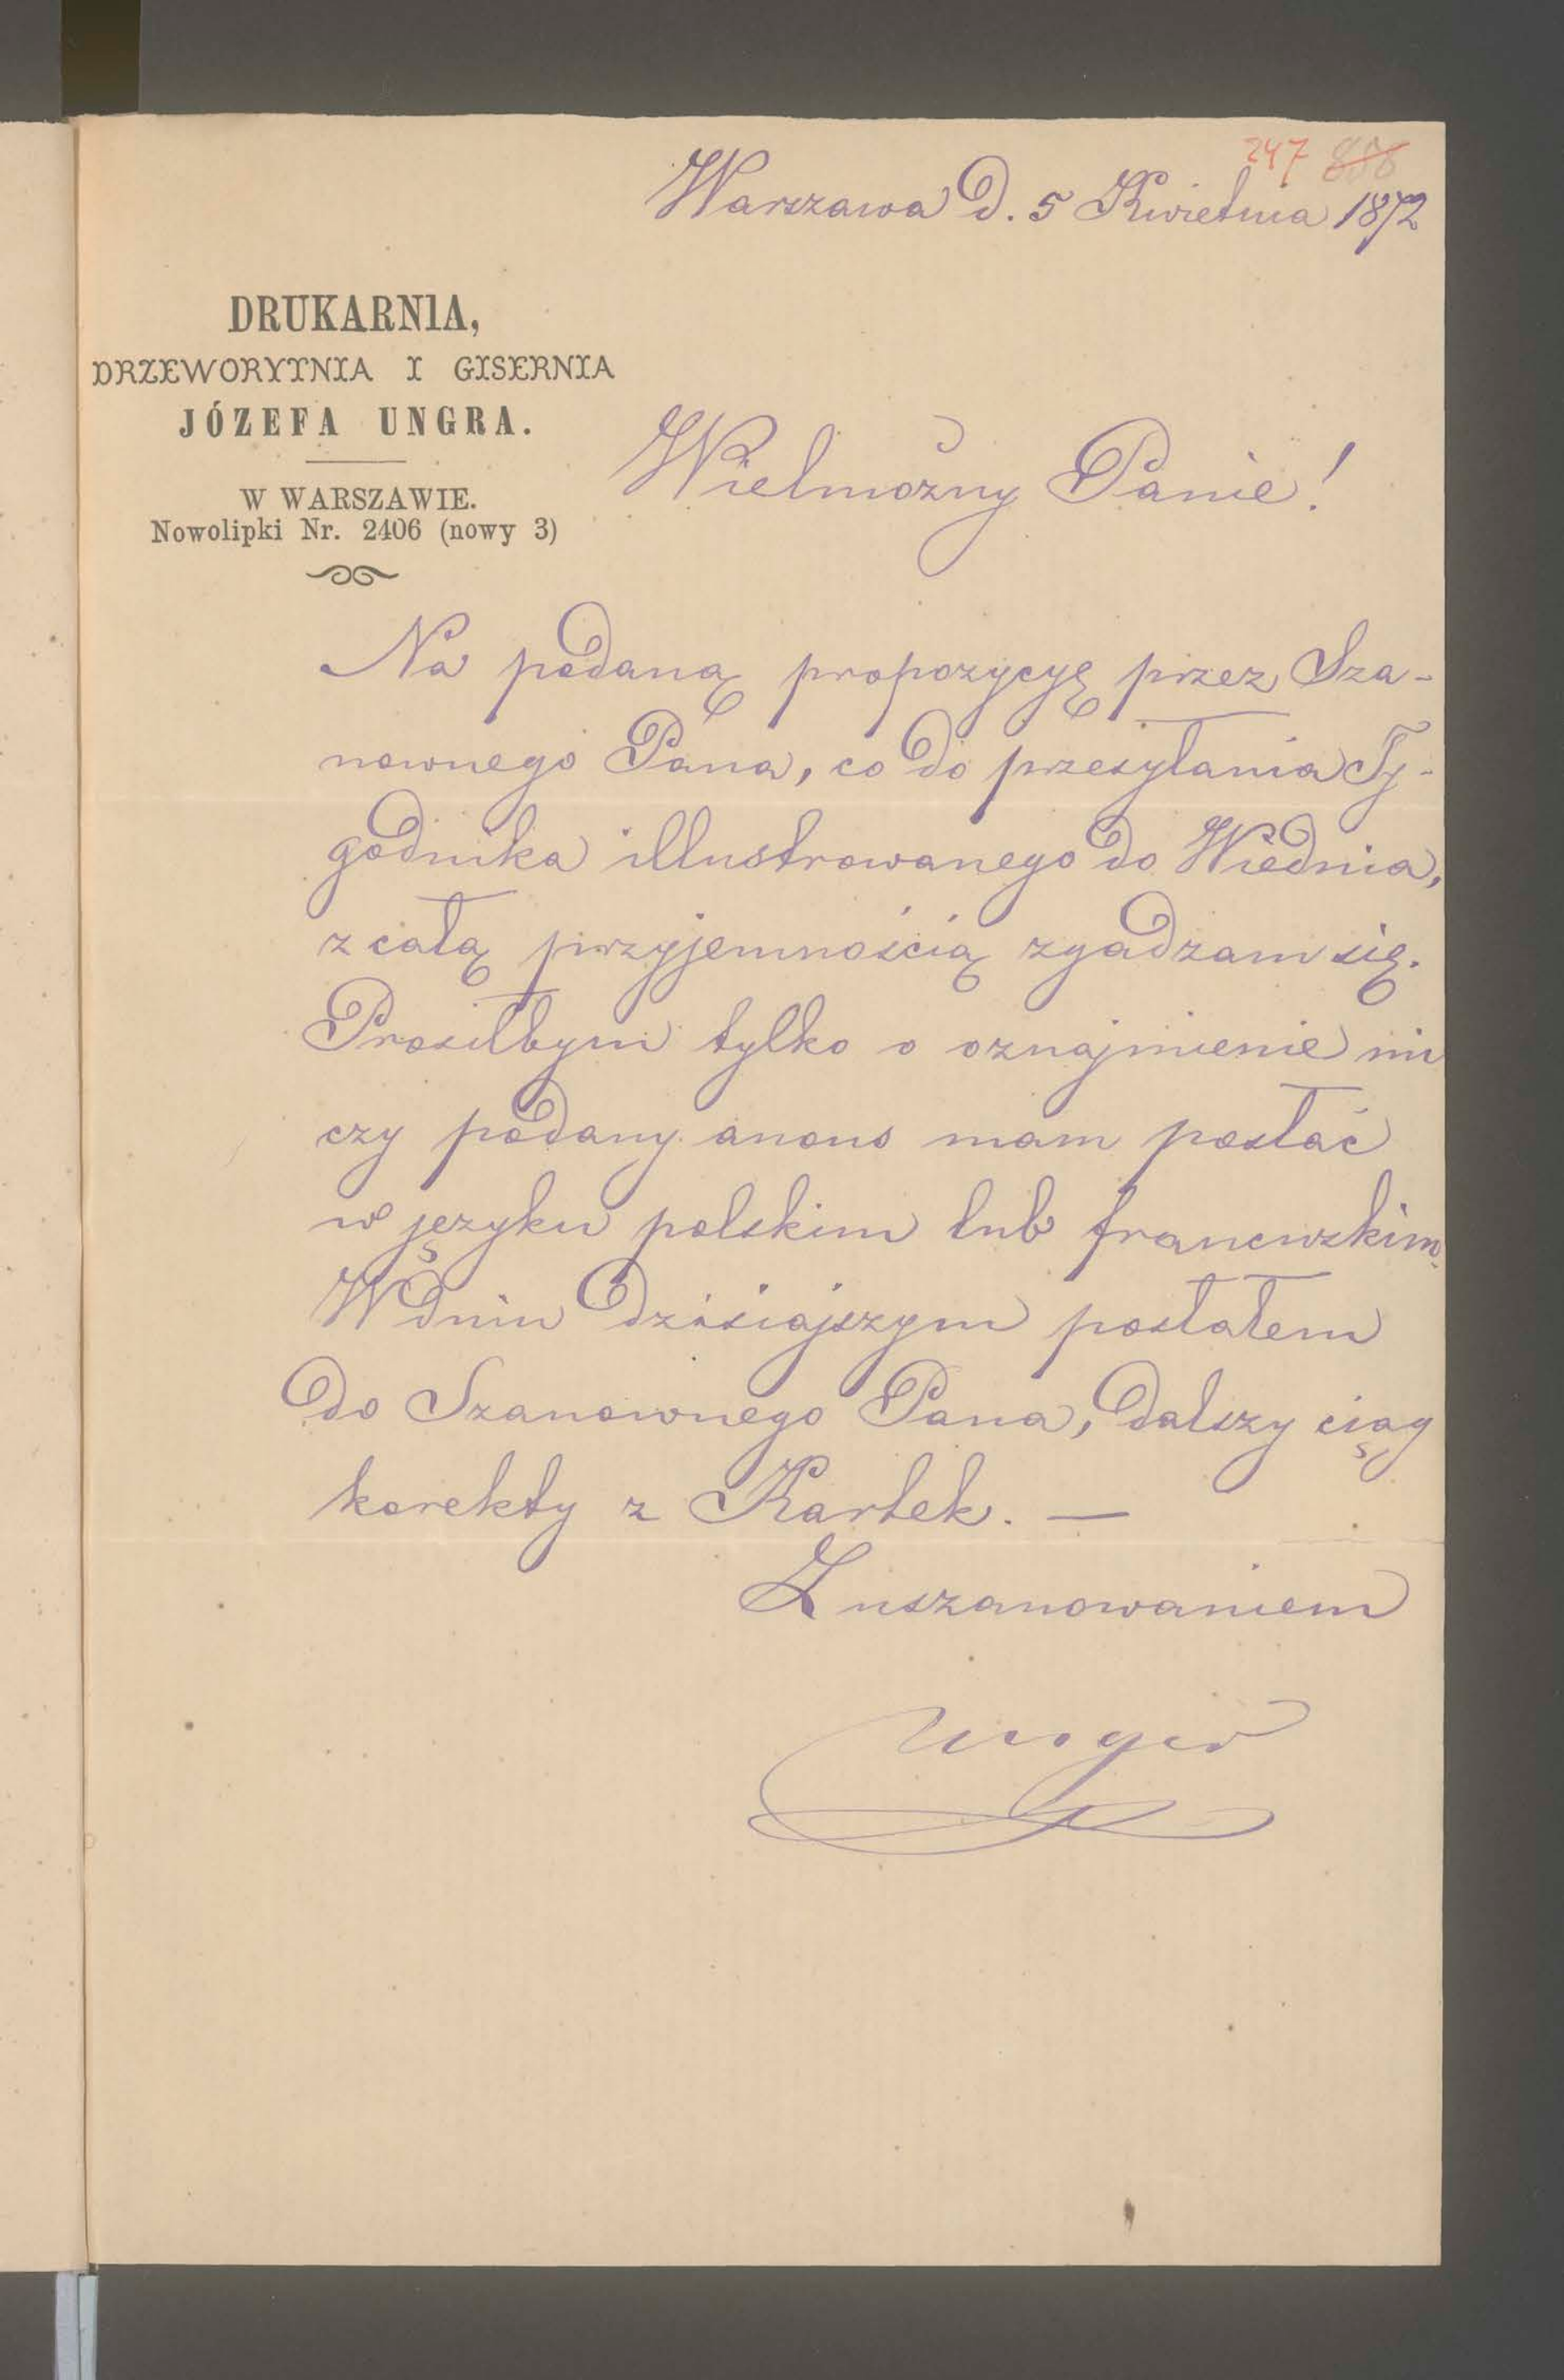 247 888
Warszawa D. 5 Kwietnia 1872
DRUKARNIA,
DRZEWORYTNIA I GISERNIA
JÓZEFA UNGRA.
W WARSZAWIE.
Nowolipki Nr. 2406 (nowy 3)
Wielmożny Panie!
Na podaną propozycyę przez Sza-
nownego Pana, co do przesyłania Ty-
godnika illustrowanego do Wiednia,
z całą przyjemnością zgadzam się.
Prosiłbym tylko o oznajmienie mi
czy podany anons mam posłać
w języku polskim lub francuzkim.
W dniu dzisiajszym posłałem
do Szanownego Pana, dalszy ciąg
korekty z Kartek. —
Z uszanowaniem
Unger